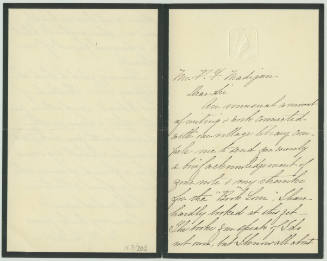 Mr. P. F. Madigan
Dear Sir
An unusual amount
of writing & work connected
with our village library com-
pels me to send you merely
a brief acknowledgement of
your note & my thanks
for the "Book Lover". I have
hardly looked at this yet.
The books you speak of I do
not own, but I know all about